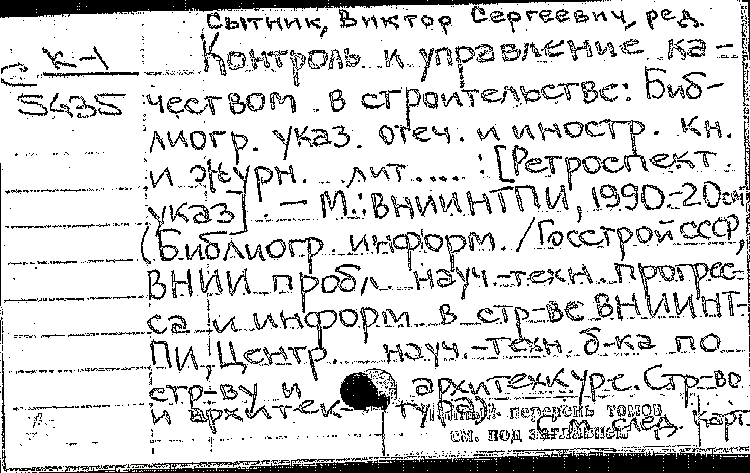 Сытник, Виктор Сергеевич, ред.
К-1 Контроль и управление ка-
С 5435 чеством в строительстве: Биб-
лиогр. указ. отеч. и иностр. кн.
и журн. лит. ... : [Ретроспект.
указ]. — М.: ВНИИНТПИ, 1990.-20см
(Библиогр. информ. / Госстрой СССР,
ВНИИ пробл. науч.-техн. прогрес-
са и информ. в стр-ве ВНИИНТ-
ПИ, Центр. науч.-техн. б-ка по
стр-ву и архитек. Стр-во
и архитектура)
перечень томов
см. под заглавием
См. след. карт.